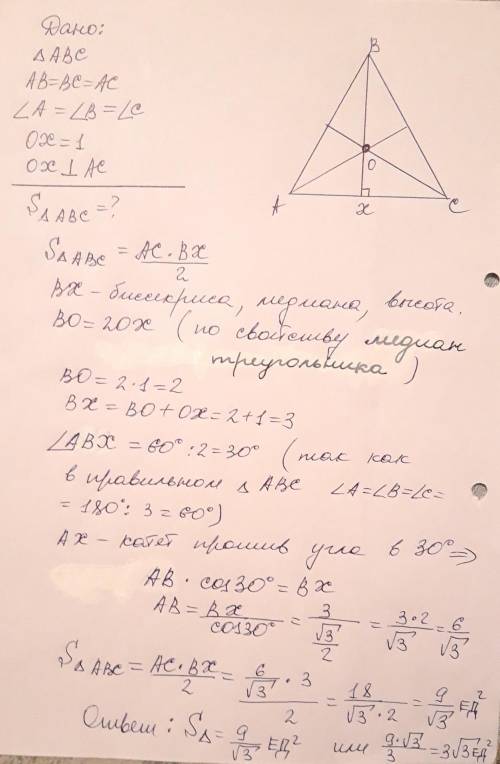 Дано:
△ABC
AB=BC=AC
∠A=∠B=∠C
OX=1
OX⊥AC
S△ABC=?
B
O
A
X
C
S△ABC = AC·BX/2
BX - биссекриса, медиана, высота.
BO=2OX (по свойству медиан
треугольника)
BO=2·1=2
BX=BO+OX=2+1=3
∠ABX=60°:2=30° (так как
в правильном △ABC ∠A=∠B=∠C=
=180°:3=60°)
AX-катет против угла в 30° ⇒
AB·cos30°=BX
AB=BX/cos30°=3/(√3/2)=3·2/√3=6/√3
S△ABC=AC·BX/2=(6/√3·3)/2=18/(√3·2)=9/√3 ЕД²
Ответ: S△=9/√3 ЕД² или 9·√3/3=3√3 ЕД²